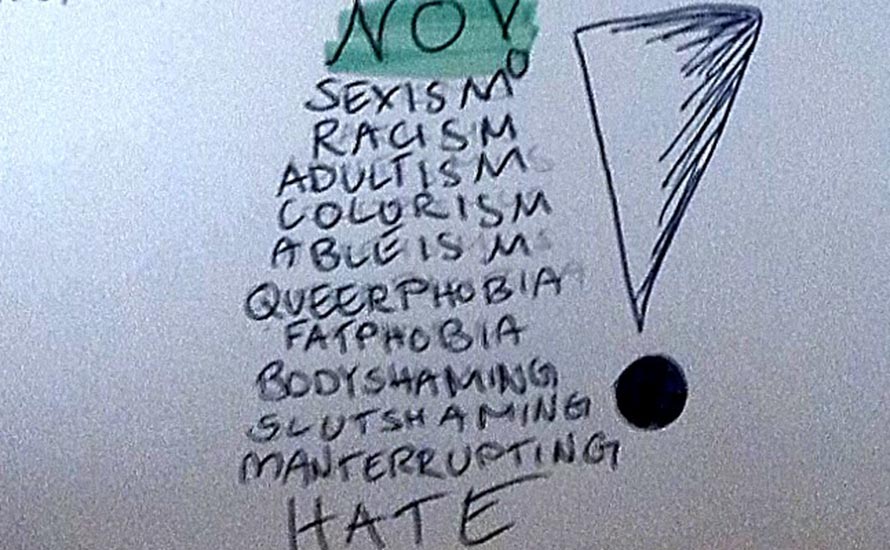 NO
SEXISM
RACISM
ADULTISM
COLORISM
ABLEISM
QUEERPHOBIA
FATPHOBIA
BODYSHAMING
SLUTSHAMING
MANTERRUPTING
HATE